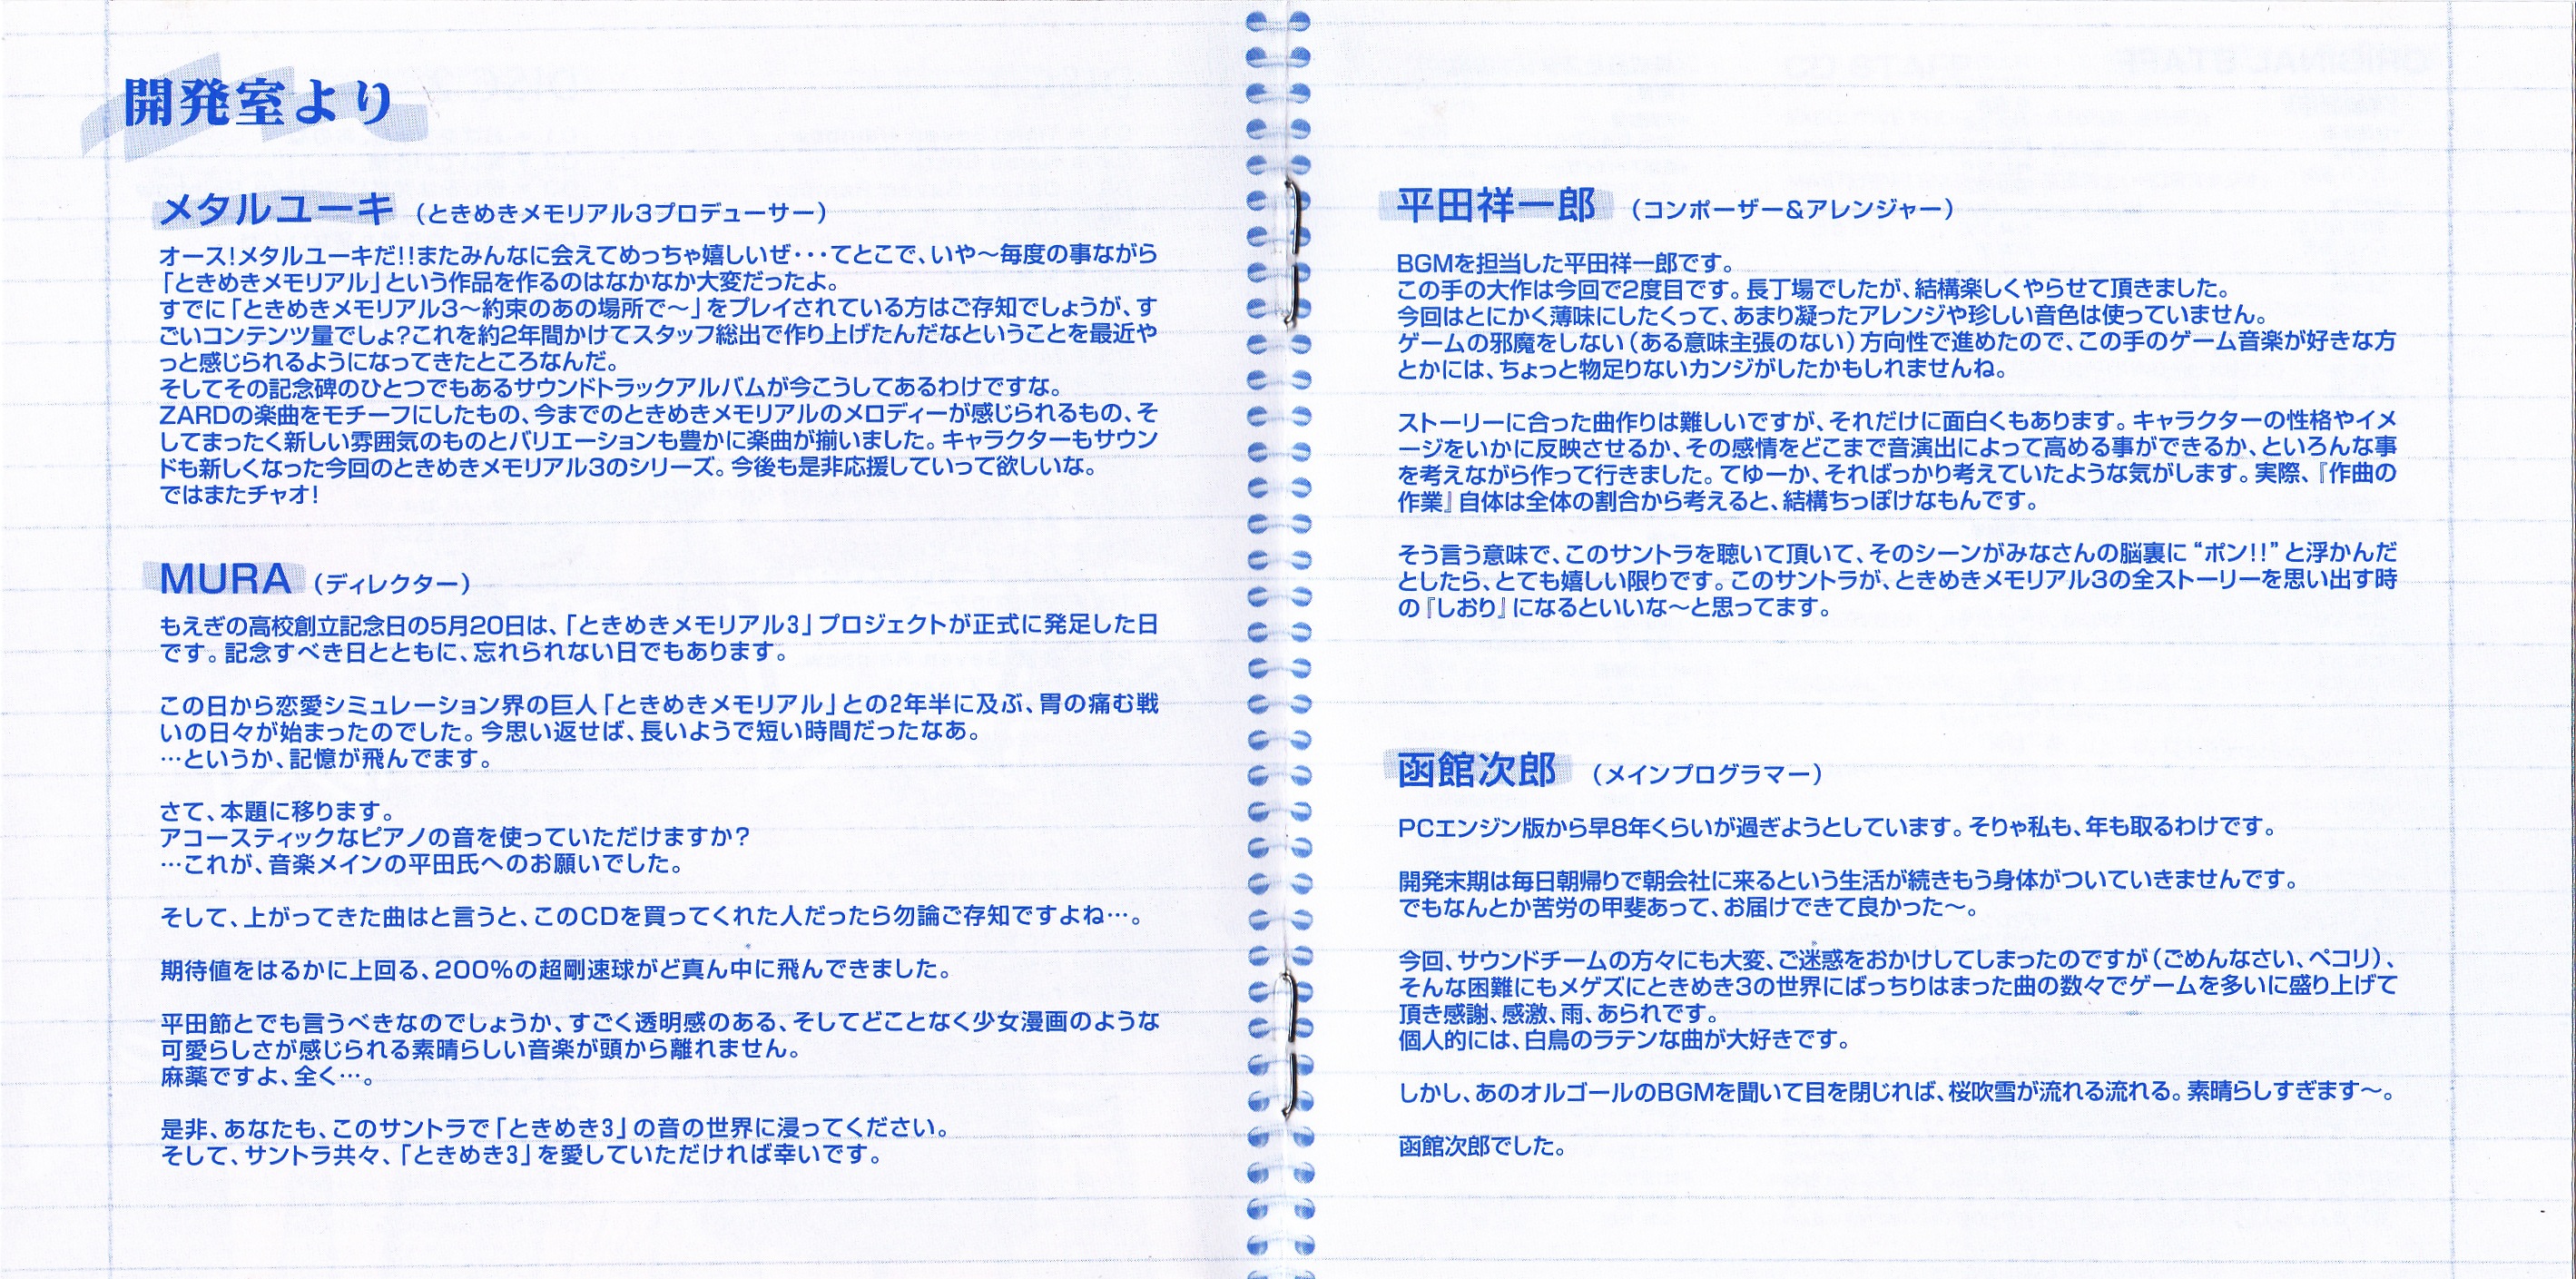 開発室より
メタルユーキ (ときめきメモリアル3プロデューサー)
オース!メタルユーキだ!!またみんなに会えてめっちゃ嬉しいぜ・・・てとこで、いや～毎度の事ながら
「ときめきメモリアル」という作品を作るのはなかなか大変だったよ。
すでに「ときめきメモリアル3～約束のあの場所で～」をプレイされている方はご存知でしょうが、す
ごいコンテンツ量でしょ?これを約2年間かけてスタッフ総出で作り上げたんだなということを最近や
っと感じられるようになってきたところなんだ。
そしてその記念碑のひとつでもあるサウンドトラックアルバムが今こうしてあるわけですな。
ZARDの楽曲をモチーフにしたもの、今までのときめきメモリアルのメロディーが感じられるもの、そ
してまったく新しい雰囲気のものとバリエーションも豊かに楽曲が揃いました。キャラクターもサウン
ドも新しくなった今回のときめきメモリアル3のシリーズ。今後も是非応援していって欲しいな。
ではまたチャオ!
MURA (ディレクター)
もえぎの高校創立記念日の5月20日は、「ときめきメモリアル3」プロジェクトが正式に発足した日
です。記念すべき日とともに、忘れられない日でもあります。
この日から恋愛シミュレーション界の巨人「ときめきメモリアル」との2年半に及ぶ、胃の痛む戦
いの日々が始まったのでした。今思い返せば、長いようで短い時間だったなあ。
…というか、記憶が飛んでます。
さて、本題に移ります。
アコースティックなピアノの音を使っていただけますか?
…これが、音楽メインの平田氏へのお願いでした。
そして、上がってきた曲はと言うと、このCDを買ってくれた人だったら勿論ご存知ですよね…。
期待値をはるかに上回る、200%の超剛速球がど真ん中に飛んできました。
平田節とでも言うべきなのでしょうか、すごく透明感のある、そしてどことなく少女漫画のような
可愛らしさが感じられる素晴らしい音楽が頭から離れません。
麻薬ですよ、全く…。
是非、あなたも、このサントラで「ときめき3」の音の世界に浸ってください。
そして、サントラ共々、「ときめき3」を愛していただければ幸いです。
平田祥一郎 (コンポーザー&アレンジャー)
BGMを担当した平田祥一郎です。
この手の大作は今回で2度目です。長丁場でしたが、結構楽しくやらせて頂きました。
今回はとにかく薄味にしたくって、あまり凝ったアレンジや珍しい音色は使っていません。
ゲームの邪魔をしない(ある意味主張のない)方向性で進めたので、この手のゲーム音楽が好きな方
とかには、ちょっと物足りないカンジがしたかもしれませんね。
ストーリーに合った曲作りは難しいですが、それだけに面白くもあります。キャラクターの性格やイメ
ージをいかに反映させるか、その感情をどこまで音演出によって高める事ができるか、といろんな事
を考えながら作って行きました。てゆーか、そればっかり考えていたような気がします。実際、『作曲の
作業』自体は全体の割合から考えると、結構ちっぽけなもんです。
そう言う意味で、このサントラを聴いて頂いて、そのシーンがみなさんの脳裏に“ポン!!”と浮かんだ
としたら、とても嬉しい限りです。このサントラが、ときめきメモリアル3の全ストーリーを思い出す時
の『しおり』になるといいな～と思ってます。
函館次郎 (メインプログラマー)
PCエンジン版から早8年くらいが過ぎようとしています。そりゃ私も、年も取るわけです。
開発末期は毎日朝帰りで朝会社に来るという生活が続きもう身体がついていきませんです。
でもなんとか苦労の甲斐あって、お届けできて良かった～。
今回、サウンドチームの方々にも大変、ご迷惑をおかけしてしまったのですが(ごめんなさい、ペコリ)、
そんな困難にもメゲズにときめき3の世界にばっちりはまった曲の数々でゲームを多いに盛り上げて
頂き感謝、感激、雨、あられです。
個人的には、白鳥のラテンな曲が大好きです。
しかし、あのオルゴールのBGMを聞いて目を閉じれば、桜吹雪が流れる流れる。素晴らしすぎます～。
函館次郎でした。